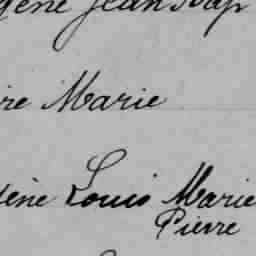 gène Jean Bap
ire Marie
lène Louis Marie
Pierre